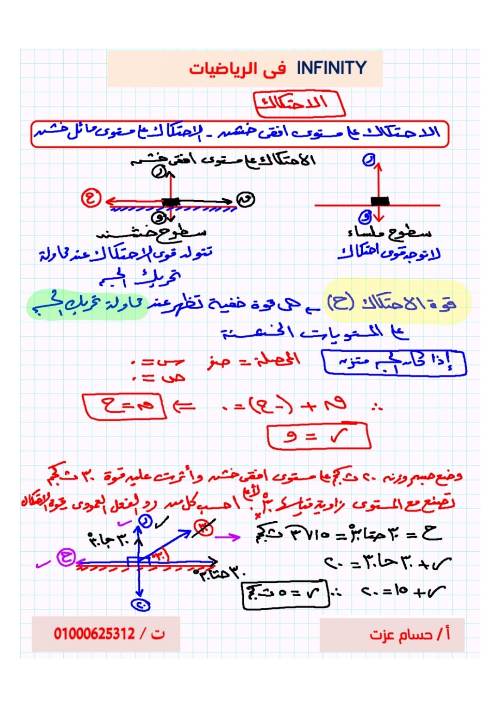 INFINITY فى الرياضيات
الاحتكاك
الاحتكاك على مستوى افقى خشن - الاحتكاك على مستوى مائل خشن
الاحتكاك على مستوى افقى خشن
ر
ر
ح
و
و
سطوح ملساء
سطوح خشنه
لا توجد قوى احتكاك
تتولد قوى الاحتكاك عند محاولة
تحريك الجسم
قوة الاحتكاك (ح) هى قوة خفية تظهر عند محاولة تحريك الجسم
على المستويات الخشنة
إذا كان الجسم متزنه
المحصلة = صفر س = ٠
ص = ٠
∴ ق + (-ح) = ٠ ⇐ ق = ح
ر = و
وضع جسم وزنه ٢٠ ث كجم على مستوى افقى خشن وأثرت عليه قوة ٣٠ ث كجم
تصنع مع المستوى زاوية قياسها ٣٠° لأعلى احسب كل من رد الفعل العمودى وقوة الاحتكاك
ح = ٣٠ حتا ٣٠ = ١٥√٣ ث كجم
ر + ٣٠ حا ٣٠ = ٢٠
ر + ١٥ = ٢٠ ∴ ر = ٥ ث كجم
ر
٣٠
٣٠ حا ٣٠
ح
٣٠
٣٠ حتا ٣٠
٢٠
أ / حسام عزت
ت / 01000625312